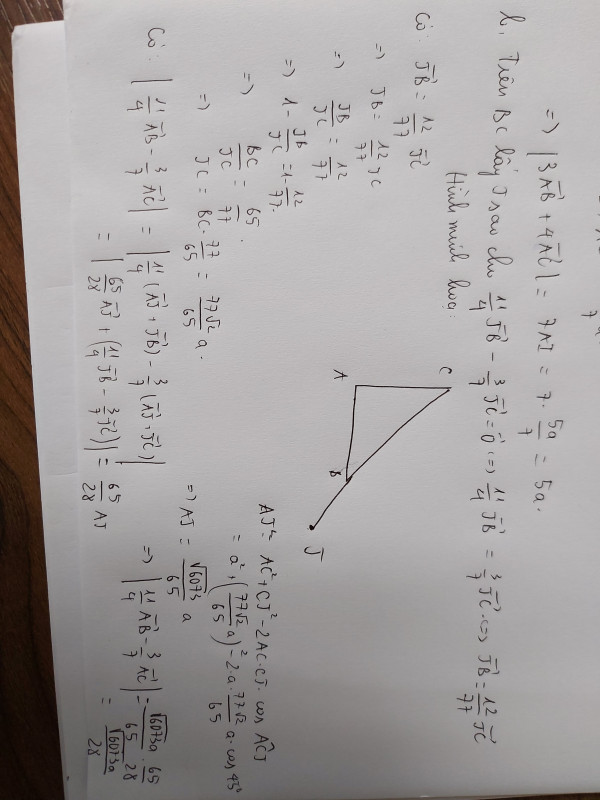 => |3AB→ + 4AC→| = 7AI = 7 · 5a/7 = 5a.
b, Trên BC lấy J sao cho 11/4 JB→ - 3/7 JC→ = 0→ <=> 11/4 JB→ = 3/7 JC→ <=> JB→ = 12/77 JC→
Có: JB→ = 12/77 JC→
Hình minh hoạ:
=> JB = 12/77 JC
=> JB/JC = 12/77
=> 1 - JB/JC = 1 - 12/77.
=> BC/JC = 65/77.
=> JC = BC · 77/65 = 77√2/65 a.
A
C
B
J
AJ² = AC² + CJ² - 2AC.CJ. cos ACJ
= a² + (77√2/65 a)² - 2a · 77√2/65 a · cos 45°
=> AJ = √6073/65 a
Có: |11/4 AB→ - 3/7 AC→| = |11/4 (AJ→ + JB→) - 3/7 (AJ→ + JC→)|
= |65/28 AJ→ + (11/4 JB→ - 3/7 JC→)| = 65/28 AJ
=> |11/4 AB→ - 3/7 AC→| = √6073a/65 · 65/28
= √6073a/28